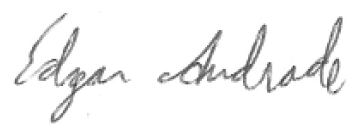 Edgar Andrade